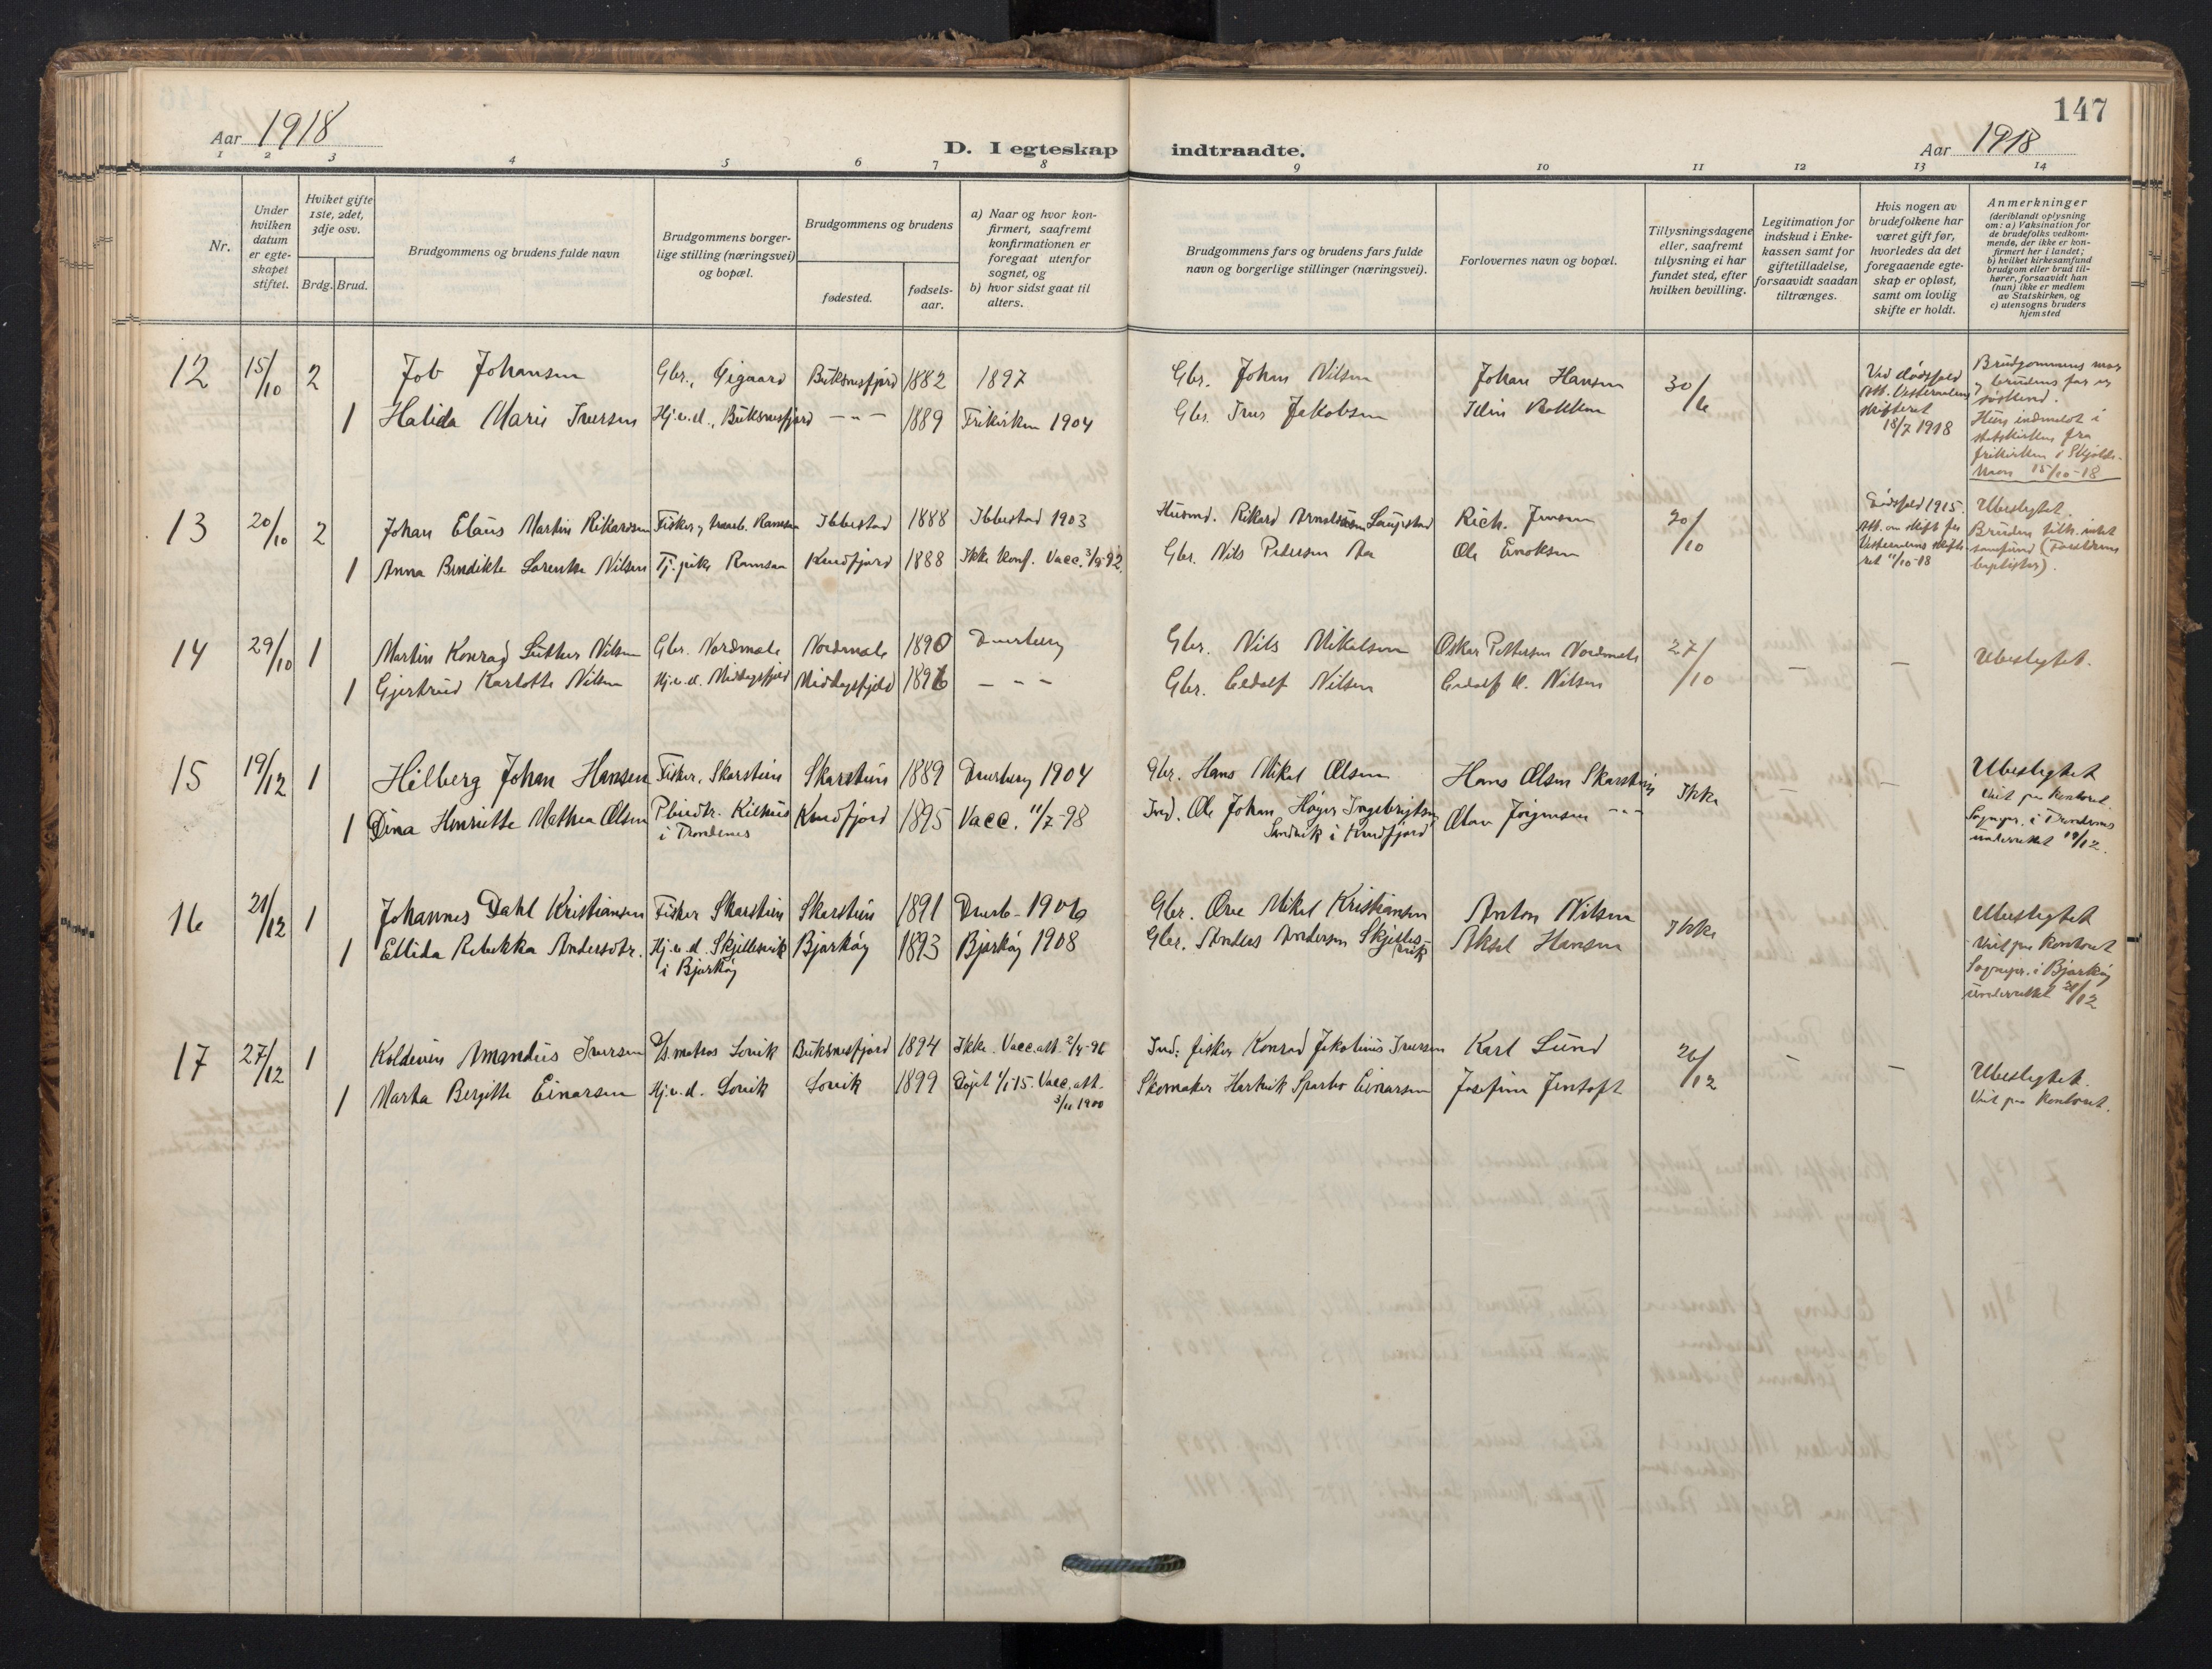 147
Aar 1918
D. I egteskap indtraadte.
Aar 1918
1 2 3 4 5 6 7 8 9 10 11 12 13 14
Nr.
Under hvilken datum er egteskapet stiftet.
Hviket gifte 1ste, 2det, 3dje osv.
Brdg. Brud.
Brudgommens og brudens fulde navn
Brudgommens borgerlige stilling (næringsvei) og bopæl.
Brudgommens og brudens
fødested.
fødselsaar.
a) Naar og hvor konfirmert, saafremt konfirmationen er foregaat utenfor sognet, og
b) hvor sidst gaat til alters.
Brudgommens fars og brudens fars fulde navn og borgerlige stillinger (næringsvei).
Forlovernes navn og bopæl.
Tillysningsdagene eller, saafremt tillysning ei har fundet sted, efter hvilken bevilling.
Legitimation for indskud i Enkekassen samt for giftetilladelse, forsaavidt saadan tiltrænges.
Hvis nogen av brudefolkene har været gift før, hvorledes da det foregaaende egteskap er opløst, samt om lovlig skifte er holdt.
Anmerkninger
(deriblandt oplysning om: a) Vaksination for de brudefolks vedkommende, der ikke er konfirmert her i landet; b) hvilket kirkesamfund brudgom eller brud tilhører, forsaavidt han (hun) ikke er medlem av Statskirken, og c) utensogns bruders hjemsted
12 15/10 2 Job Johansen Gbr., Buksnesfjord 1882 1897 Gbr. Johan Nilsen Johan Hansen 30/6 Ved dødsfald Att. Vesteraalens skifteret 18/7 1918 Brudgommens mor og brudens far er søskend.
1 Halida Marie Iversen Hj.v.d., Buksnesfjord - " - 1889 Frikirken 1904 Gbr. Iver Jakobsen Bakken Hun indmeldt i statskirken fra frikirken i 15/10-18
13 20/10 2 Johan Elaus Martin Rikardsen Fisker, Ramsaa Ibbestad 1888 Ibbestad 1903 Husmd. Rikard Rich. Jensen 20/10 Dødsfald 1915. Att. om skift fra Vesteraalens skifteret 11/10-18 Ubeslegtet.
1 Anna Bendikte Lorentse Nilsen Tj.pike Ramsaa Kvedfjord 1888 Ikke konf. Vacc. Gbr. Nils Pedersen Aa Ole Enoksen Bruden tilh. intet samfund (Forældrene baptister).
14 29/10 1 Martin Konrad Luther Nilsen Gbr. Nordmæle Nordmæle 1890 Dverberg Gbr. Nils Mikalsen Oskar Pettersen Nordmæle 27/10 - - Ubeslegtet.
1 Gjertrud Karlotte Nilsen Hj.v.d. Midtagsfjeld Midtagsfjeld 1896 - " - Gbr. Nilsen Nilsen
15 19/12 1 Hilberg Johan Hansen Fisker, Skarstein Skarstein 1889 Dverberg 1904 Gbr. Hans Mikal Olsen Hans Olsen Skarstein Ikke - - Ubeslegtet Viet paa kontoret.
1 Dina Henriette Mathea Olsen i Trondenes Kvedfjord 1895 Vacc. 11/7-98 Ind. Ole Johan Høyer Ingebrigtsen Sandvik i Kvedfjord Olav Jørgensen - " - Sognepr. i Trondenes underrettet 19/12.
16 21/12 1 Johannes Dahl Kristiansen Fisker Skarstein Skarstein 1891 Dverb- 1906 Gbr. Ove Mikal Kristiansen Anton Nilsen Ikke Ubeslegtet Viet paa kontoret
1 Ellida Rebekka Andersdtr. Hj.v.d. Skjellesvik i Bjarkøy Bjarkøy 1893 Bjarkøy 1908 Gbr. Anders Andersen Skjellesvik Aksel Hansen Sognepr. i Bjarkøy underrettet 21/12
17 27/12 1 Koldevin Amandus Iversen D/s. matros Lovik Buksnesfjord 1894 Ikke. Vacc.att. 2/4-96 Ind. fisker Konrad Jakobinus Iversen Karl Lund 26/12 - - Ubeslegtet.
1 Marta Bergitte Einarsen Hj.v.d. Lovik Lovik 1899 Døpt 1/1-15. Vacc.att. 3/11 1900 Skomaker Hartvik Sparbo Einarsen Josefine Jentoft Viet paa kontoret.